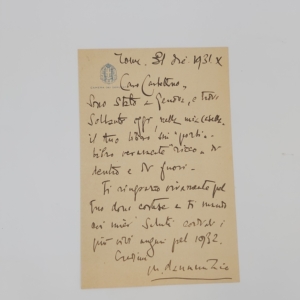 31 dic. 1931 X
Caro
Sono stato a Genova, e trovo
soltanto oggi, nella mia casella
il tuo libro sui "porti".
Libro veramente ricco di
dentro e di fuori.
Ti ringrazio vivamente pel
tuo dono cortese e ti mando
coi miei saluti cordiali i
più vivi auguri pel 1932.